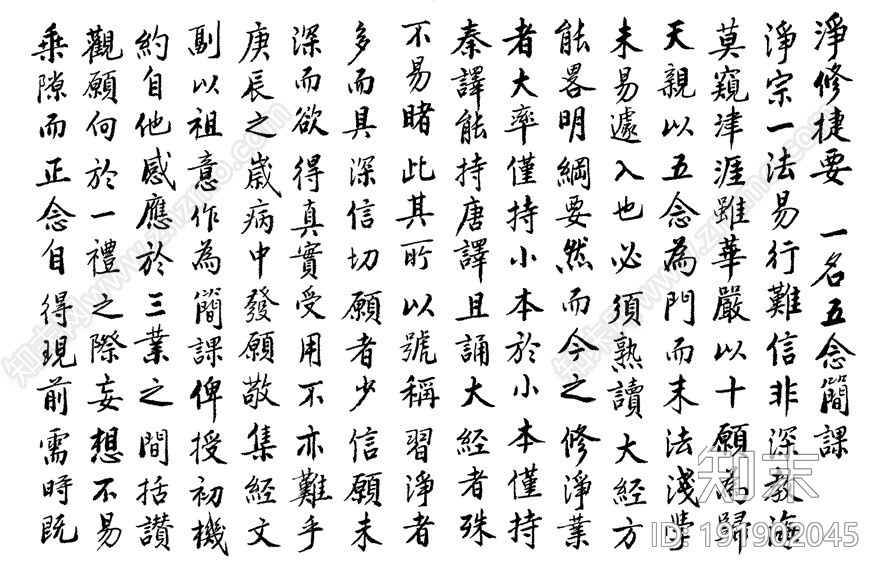 淨修捷要 一名五念簡課
淨宗一法易行難信非深教海
莫窺津涯雖華嚴以十願為歸
天親以五念為門而末法淺學
未易遽入也必須熟讀大經方
能畧明綱要然而今之修淨業
者大率僅持小本於小本僅持
秦譯能持唐譯且誦大經者殊
不易睹此其所以號稱習淨者
多而具深信切願者少信願未
深而欲得真實受用不亦難乎
庚辰之嵗病中發願敬集經文
副以祖意作為簡課俾授初機
約自他感應於三業之間括讚
觀願向於一禮之際妄想不易
乘隙而正念自得現前需時既
知末
ID: 191902045